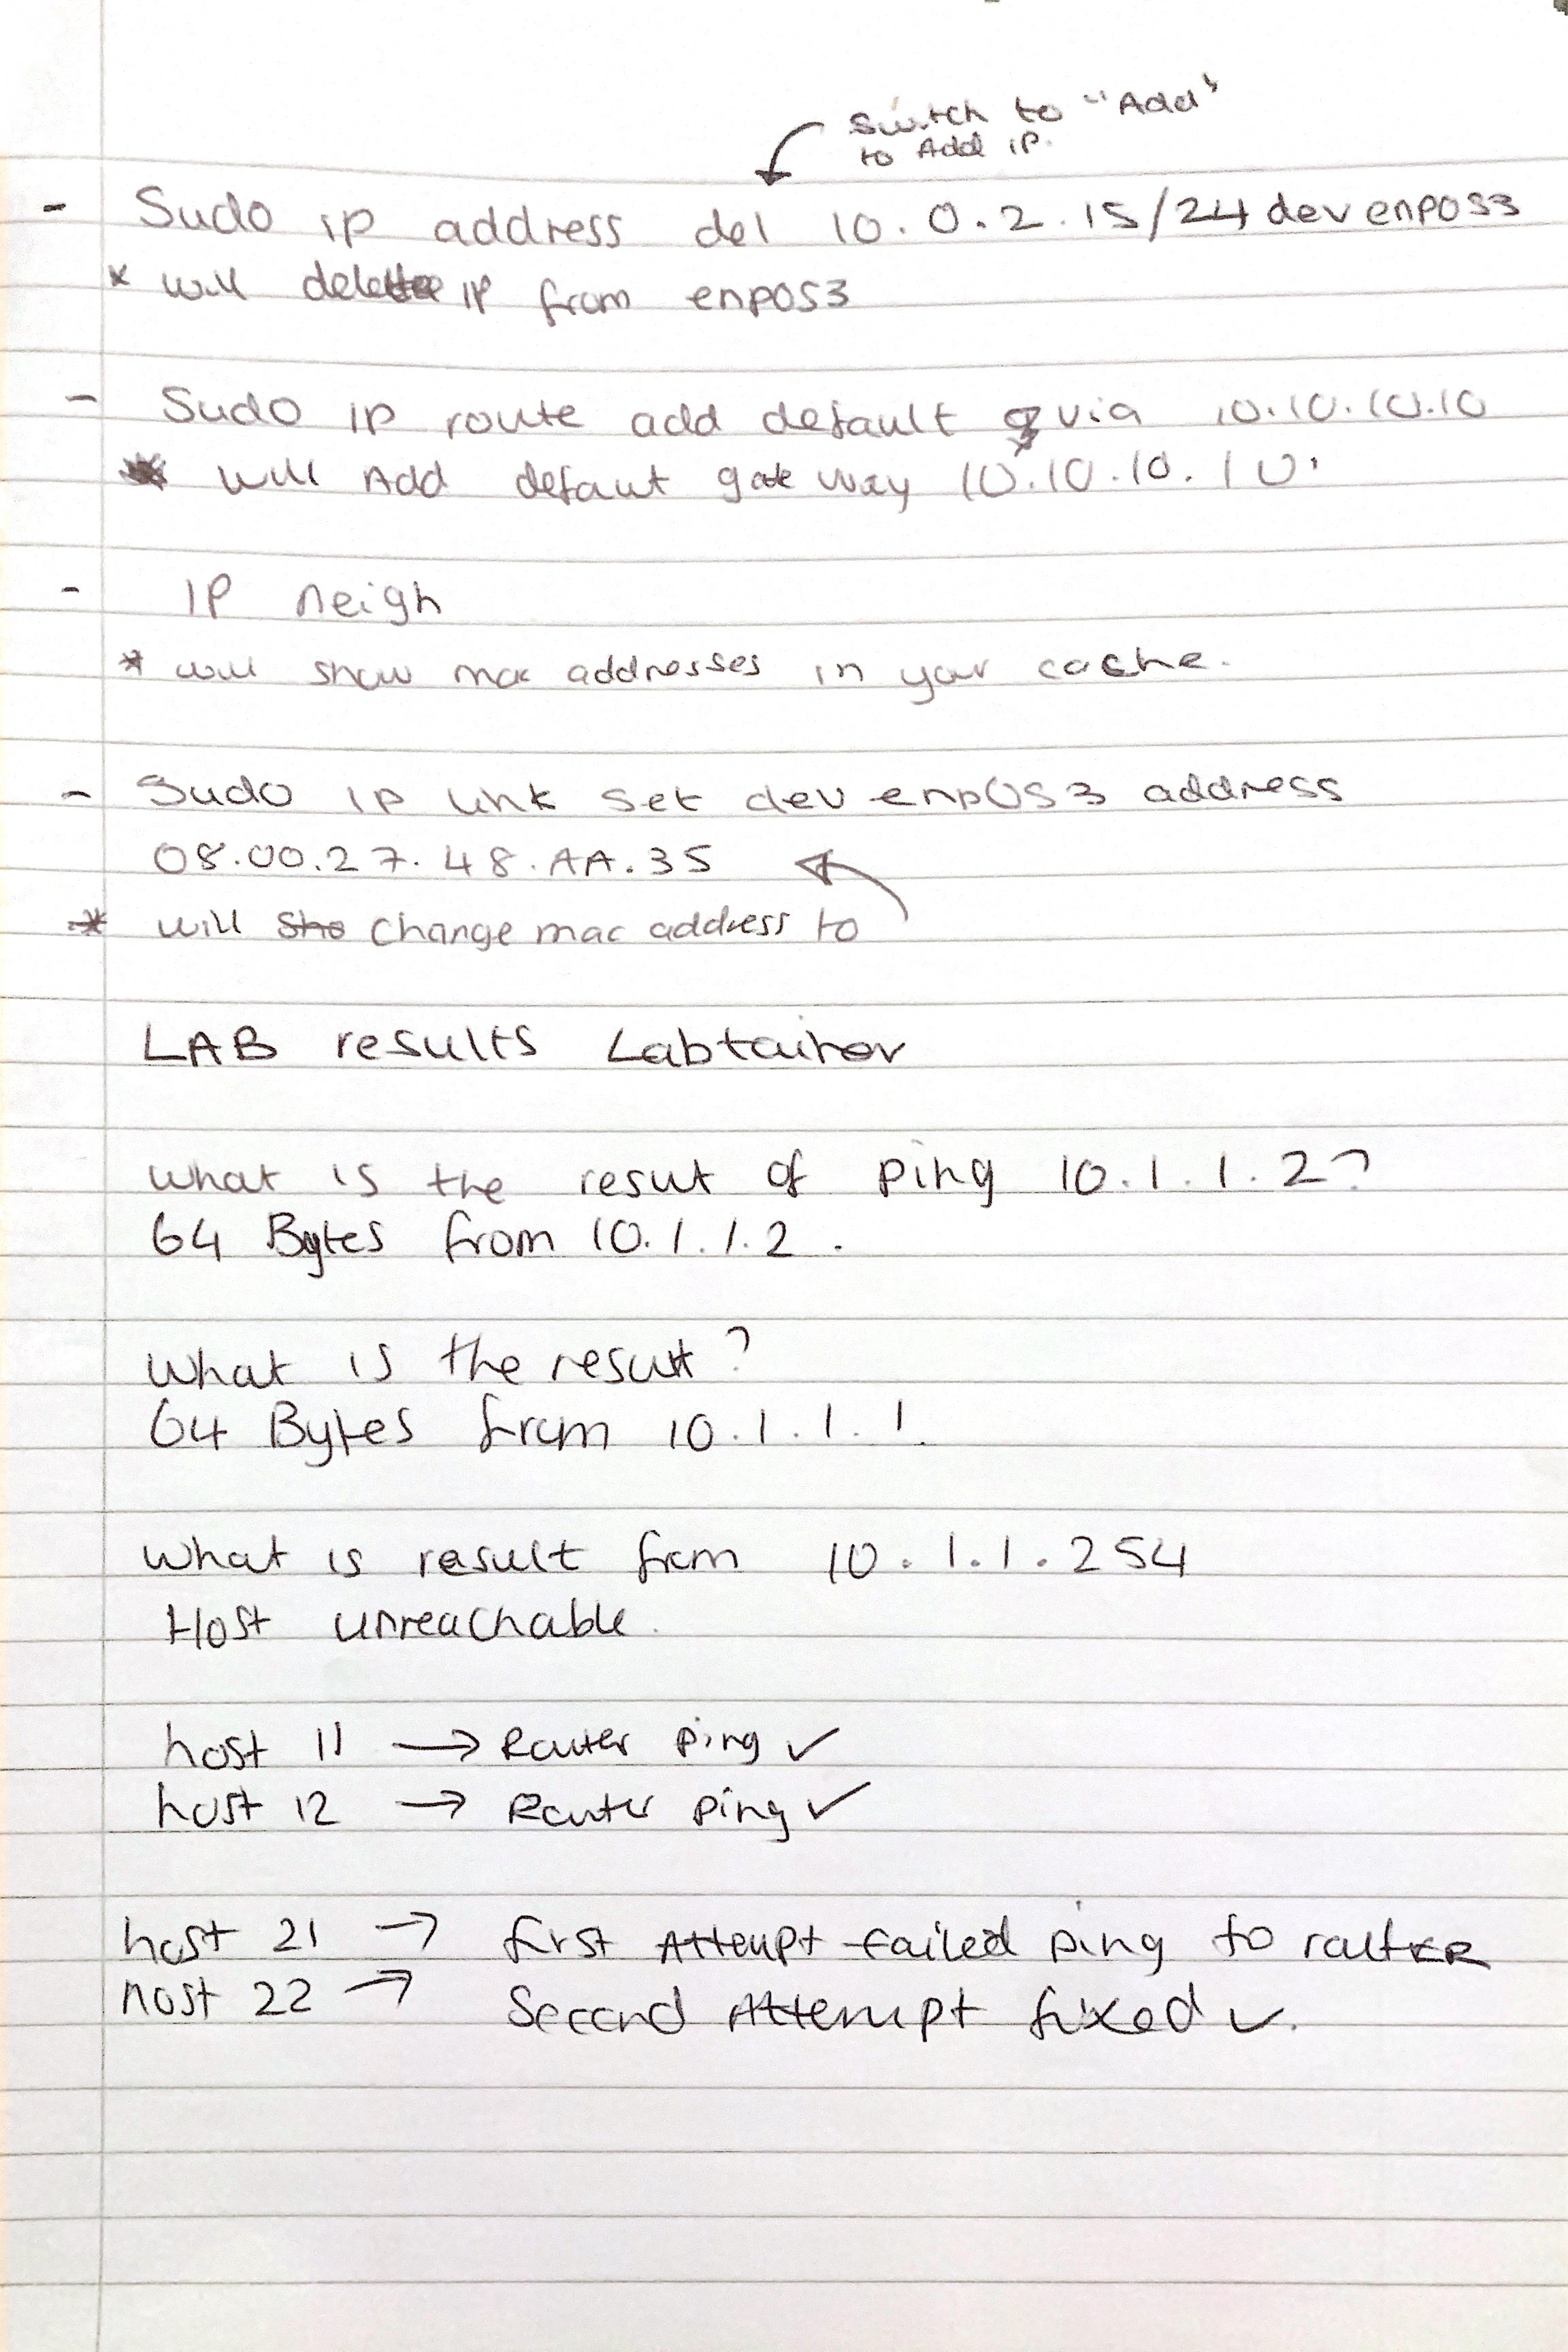 Switch to "Add"
to Add IP.
- Sudo ip address del 10.0.2.15/24 dev enp0s3
* will delete IP from enp0s3
- Sudo ip route add default via 10.10.10.10
* will Add defaut gate way 10.10.10.10.
- IP neigh
* will show mac addresses in your cache.
- Sudo ip link set dev enp0s3 address
08.00.27.48.AA.35
* will Sho change mac address to
LAB results Labtainer
What is the resut of ping 10.1.1.2?
64 Bytes from 10.1.1.2.
What is the result?
64 Bytes from 10.1.1.1.
What is result from 10.1.1.254
Host unreachable.
host 11 → Router ping ✓
host 12 → Router ping ✓
host 21 → first Attempt failed ping to router
host 22 → Second Attempt fixed ✓.